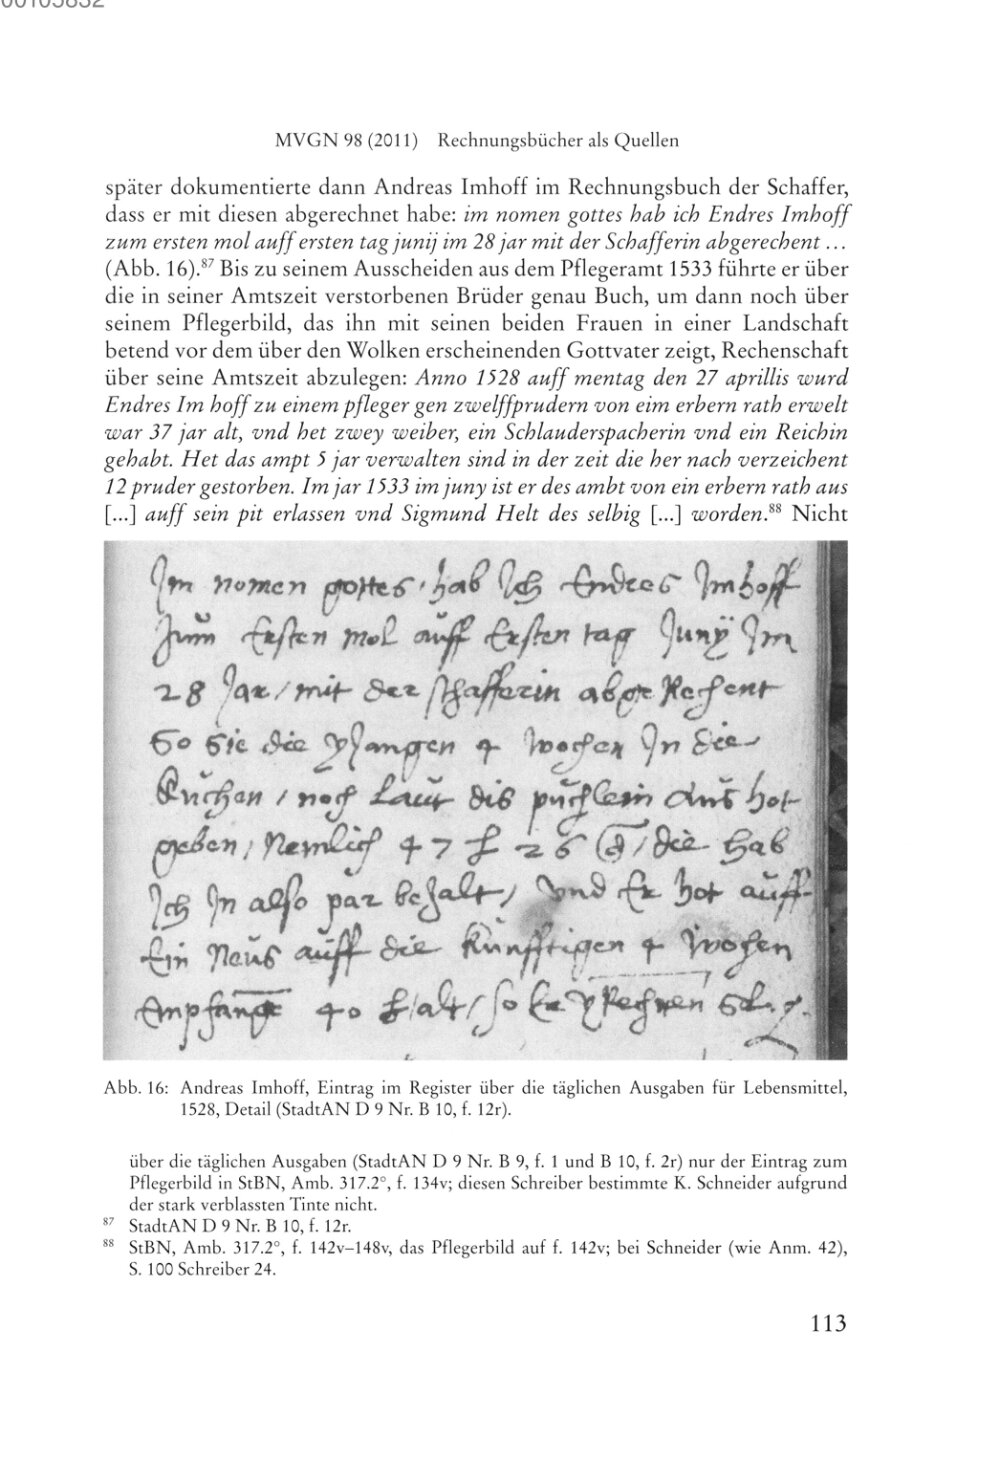 00105832
MVGN 98 (2011) Rechnungsbücher als Quellen
später dokumentierte dann Andreas Imhoff im Rechnungsbuch der Schaffer,
dass er mit diesen abgerechnet habe: im nomen gottes hab ich Endres Imhoff
zum ersten mol auff ersten tag junij im 28 jar mit der Schafferin abgerechent …
(Abb. 16).⁸⁷ Bis zu seinem Ausscheiden aus dem Pflegeramt 1533 führte er über
die in seiner Amtszeit verstorbenen Brüder genau Buch, um dann noch über
seinem Pflegerbild, das ihn mit seinen beiden Frauen in einer Landschaft
betend vor dem über den Wolken erscheinenden Gottvater zeigt, Rechenschaft
über seine Amtszeit abzulegen: Anno 1528 auff mentag den 27 aprillis wurd
Endres Im hoff zu einem pfleger gen zwelffprudern von eim erbern rath erwelt
war 37 jar alt, vnd het zwey weiber, ein Schlauderspacherin vnd ein Reichin
gehabt. Het das ampt 5 jar verwalten sind in der zeit die her nach verzeichent
12 pruder gestorben. Im jar 1533 im juny ist er des ambt von ein erbern rath aus
[...] auff sein pit erlassen vnd Sigmund Helt des selbig [...] worden.⁸⁸ Nicht
Im nomen gottes hab Ich Endres Imhoff
Zum Ersten mol auff Ersten tag Junÿ Im
28 Jar / mit der schafferin abge Rechent
So Sie die 4 wochen In die
Kuchen / noch Laut dis puchlein aus hot
geben / Nemlich 47 26 / die hab
Ich In also par bezalt / Und Er hot auff
Ein Neus auff die Kunfftigen 4 wochen
Empfangt 40 alt / so Er
Abb. 16: Andreas Imhoff, Eintrag im Register über die täglichen Ausgaben für Lebensmittel,
1528, Detail (StadtAN D 9 Nr. B 10, f. 12r).
über die täglichen Ausgaben (StadtAN D 9 Nr. B 9, f. 1 und B 10, f. 2r) nur der Eintrag zum
Pflegerbild in StBN, Amb. 317.2°, f. 134v; diesen Schreiber bestimmte K. Schneider aufgrund
der stark verblassten Tinte nicht.
⁸⁷ StadtAN D 9 Nr. B 10, f. 12r.
⁸⁸ StBN, Amb. 317.2°, f. 142v–148v, das Pflegerbild auf f. 142v; bei Schneider (wie Anm. 42),
S. 100 Schreiber 24.
113